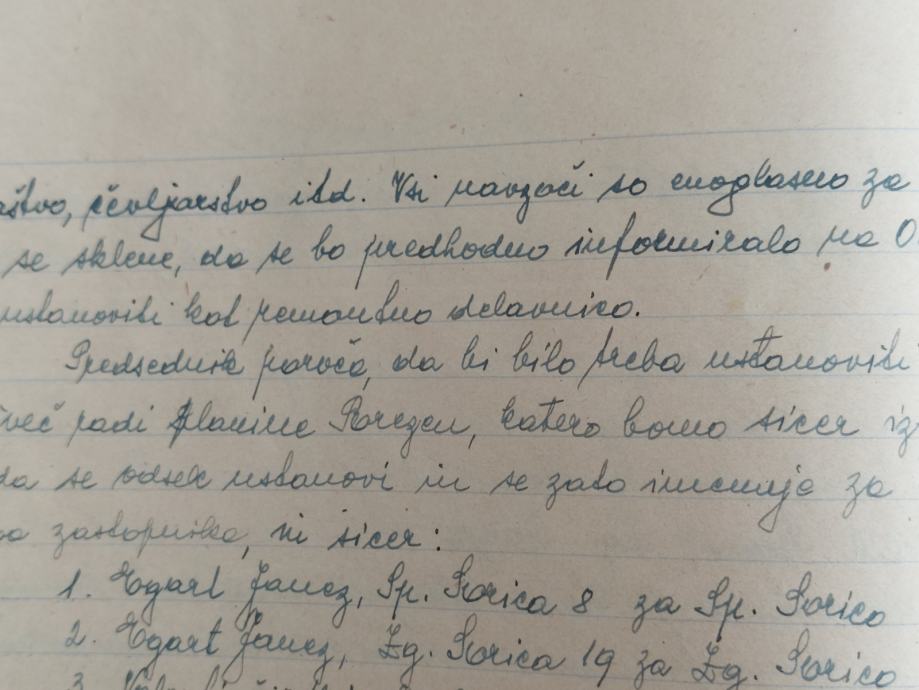 aštvo, čevljarstvo itd. Vsi navzoči so enoglasno za
se sklene, da se bo predhodno informiralo na O
ustanoviti kot remontno delavnico.
Predsednik poroča, da bi bilo treba ustanoviti
več radi planine Porezen, katero bomo sicer iz
da se odsek ustanovi in se zato imenuje za
zastopnika, in sicer:
1. Egart Janez, Sp. Sorica 8 za Sp. Sorico
2. Egart Janez, Zg. Sorica 19 za Zg. Sorico
3.